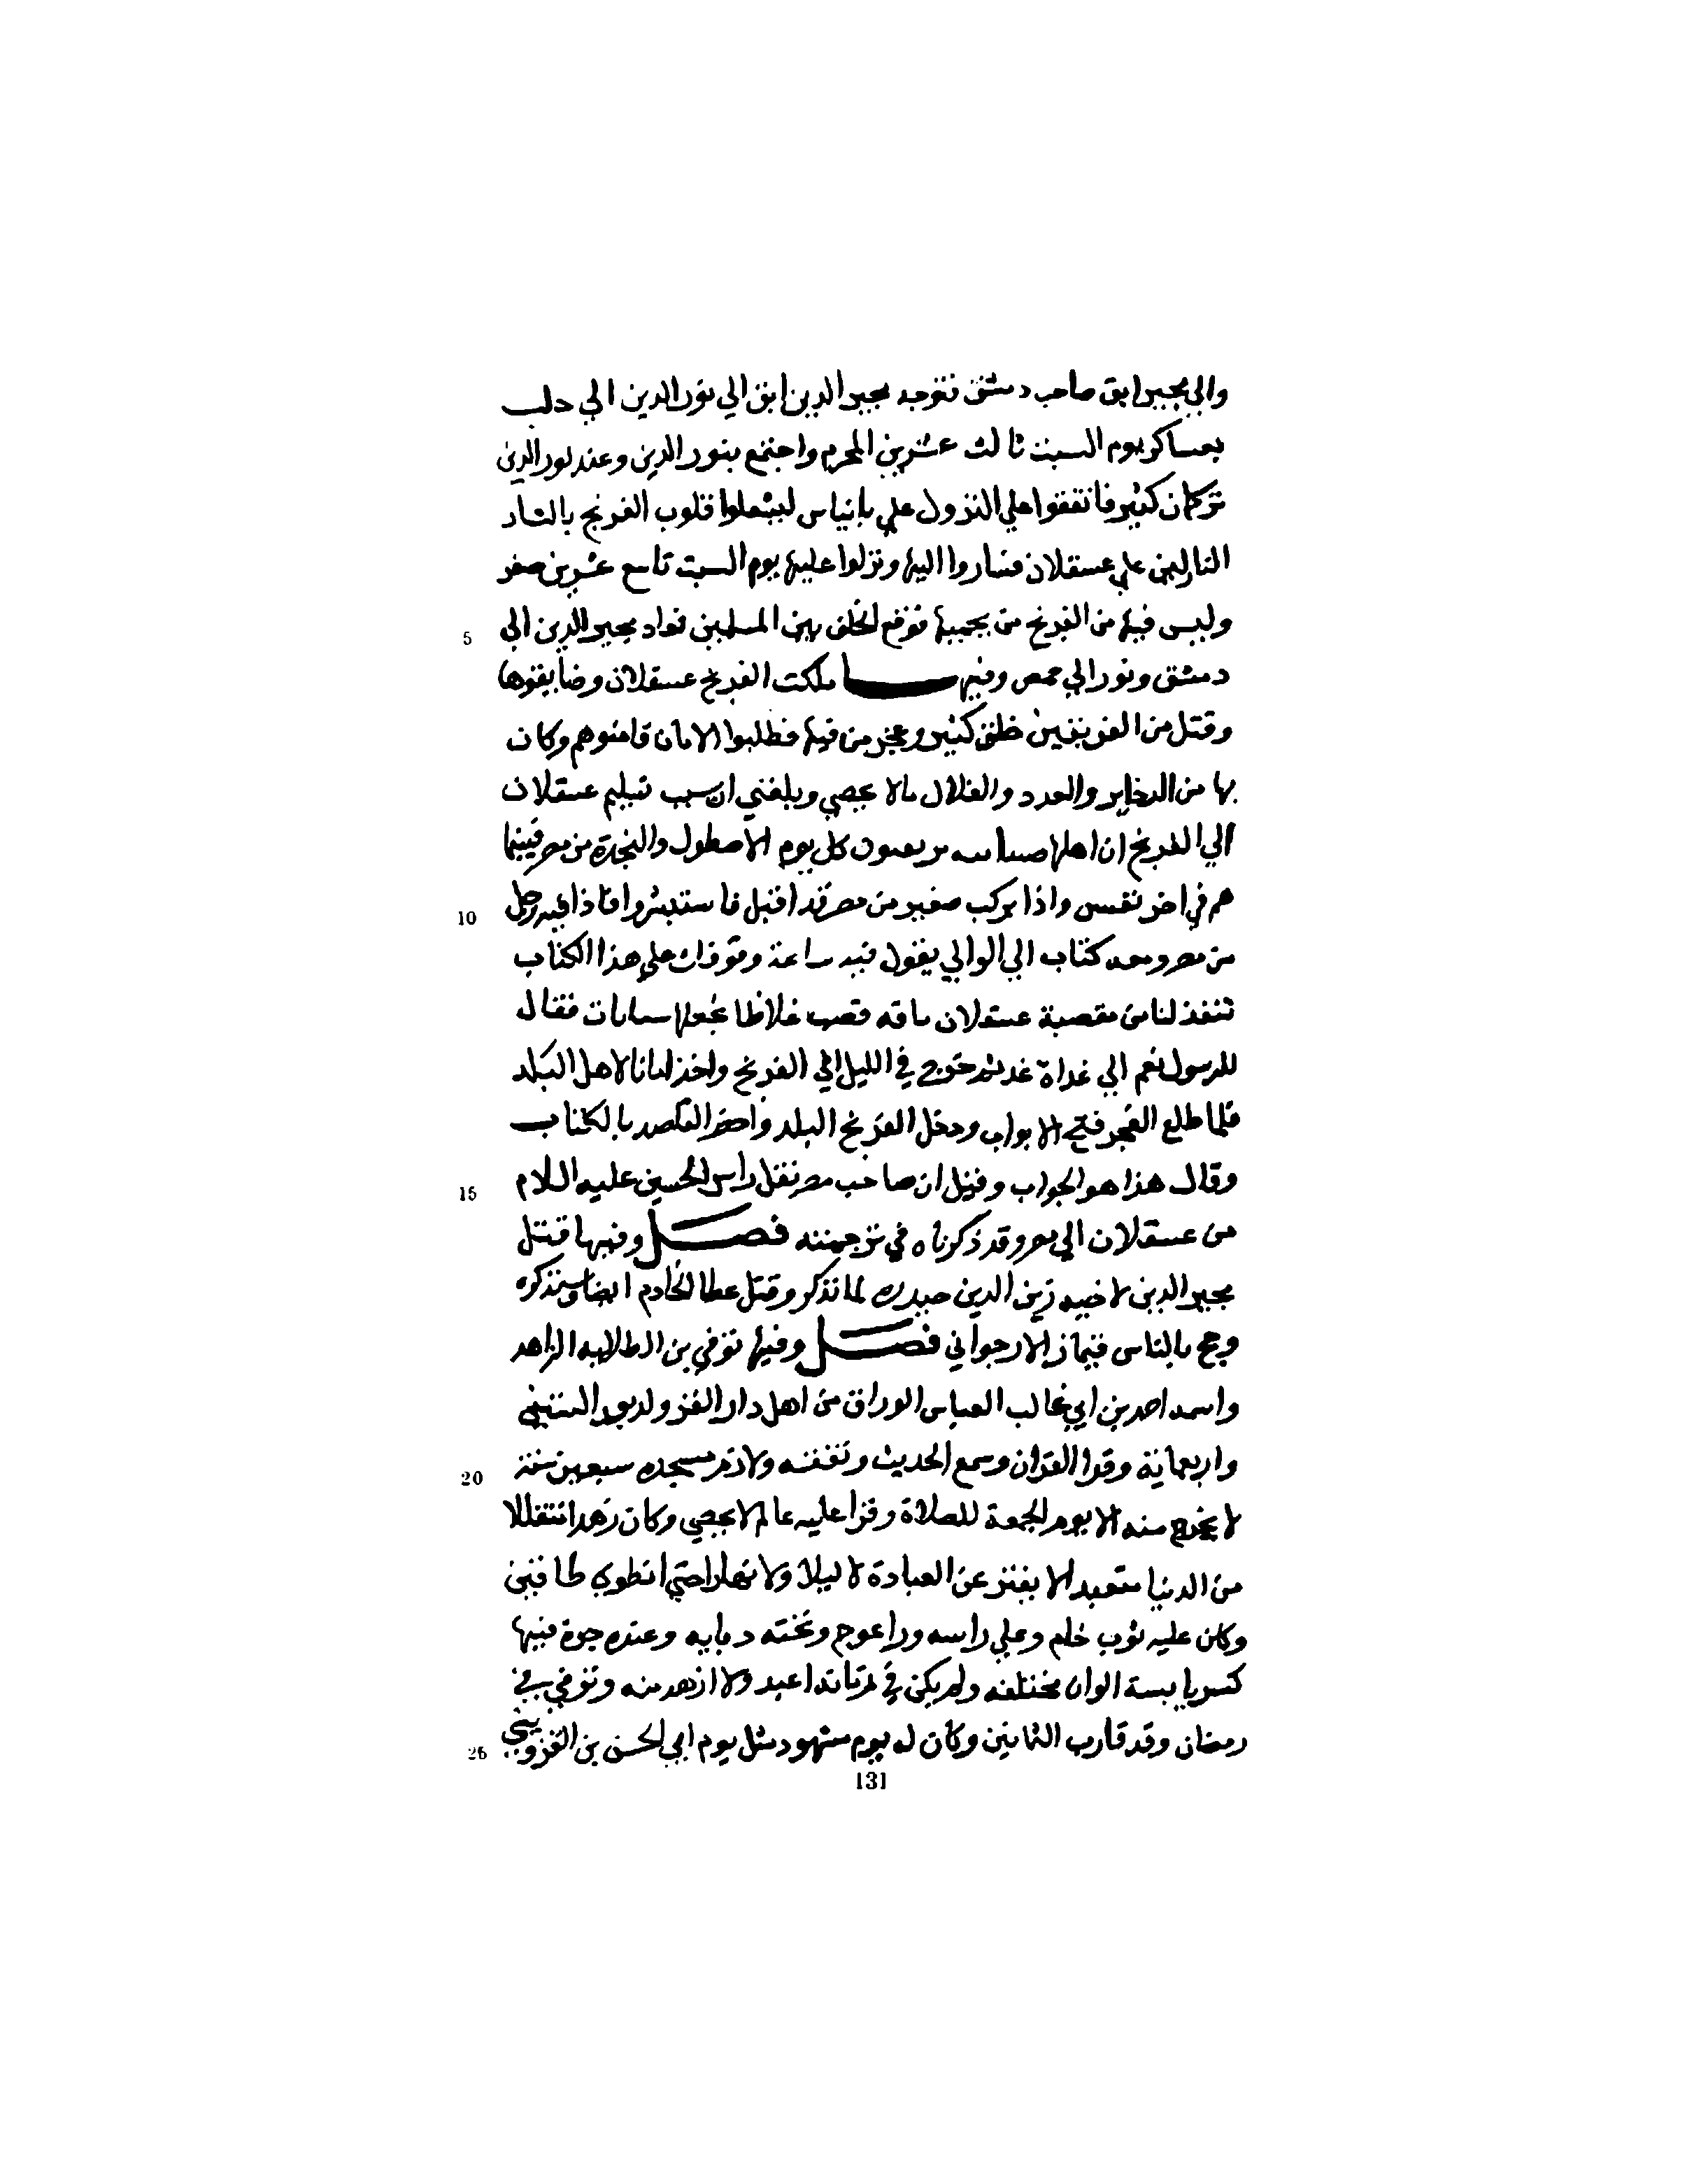 والي مجير ابق صاحب دمشق فتوجه مجير الدين ابق الي نور الدين الي حلب
بعساكر يوم السبت ثالث عشرين المحرم واجتمع بنور الدين وعند نور الدين
تركمان كثير فاتفقوا علي النزول علي بانياس ليشغلوا قلوب الفرنج بالشار
النازلين علي عسقلان فساروا اليها ونزلوا عليها يوم السبت تاسع عشرين صفر
5 وليس فيها من الفرنج من يحميها فوقع الخلف بين المسلمين فعاد مجير الدين الي
دمشق ونور الي حمص وفيها ملكت الفرنج عسقلان وضايقوها
وقتل من الفريقين خلق كثير وعجز من فيها فطلبوا الامان فامنوهم وكان
بها من الدخاير والعدد والغلال مالا يحصي وبلغني ان سبب تسليم عسقلان
الي الفرنج ان اهلها كل يوم الاصطول والنجدة من مصر فبينما
10 هم في اخر نفس واذا بركب صغير من مصر قد اقبل فاستبشروا فاذا فيه رجل
من مصر ومعه كتاب الي الوالي يقول فيه ساعة وقوفك علي هذا الكتاب
تنفذ لنا من مقصبة عسقلان باقه قصب غلاظا نجعلها فقال
للرسول نعم الي غداة غد ثم خرج في الليل الي الفرنج واخذ امانا لاهل البلد
فلما طلع الفجر فتح الابواب ودخل الفرنج البلد واحضر القاصد بالكتاب
15 وقال هذا هو الجواب وقيل ان صاحب مصر نقل راس الحسين عليه السلام
من عسقلان الي مصر وقد ذكرناه في ترجمته فصل وفيها قتل
مجير الدين لاخيه زين الدين حيدره لما نذكر وقتل عطا الخادم ايضا وسنذكره
وحج بالناس قيماز الارجواني فصل وفيها توفي بن الطلايه الزاهد
واسمه احمد بن ابي غالب العباس الوراق من اهل دار القز ولد بعد الستين
20 واربعماية وقرا القران وسمع الحديث وتفقه ولازم مسجده سبعين سنة
لا يخرج منه الا يوم الجمعة للصلاة وقرا عليه عالم لا يحصي وكان زهدا متقللا
من الدنيا متعبدا لا يفتر عن العبادة لا ليلا ولا نهارا حتي انطوي طاقين
وكان عليه ثوب خام وعلي راسه وعنده جرة فيها
كسر يابسة الوان مختلفه ولم يكن في زمانه اعبد ولا ازهد منه وتوفي في
25 رمضان وقد قارب الثمانين وكان له يوم مشهود مثل يوم ابي الحسن بن القزويني
131